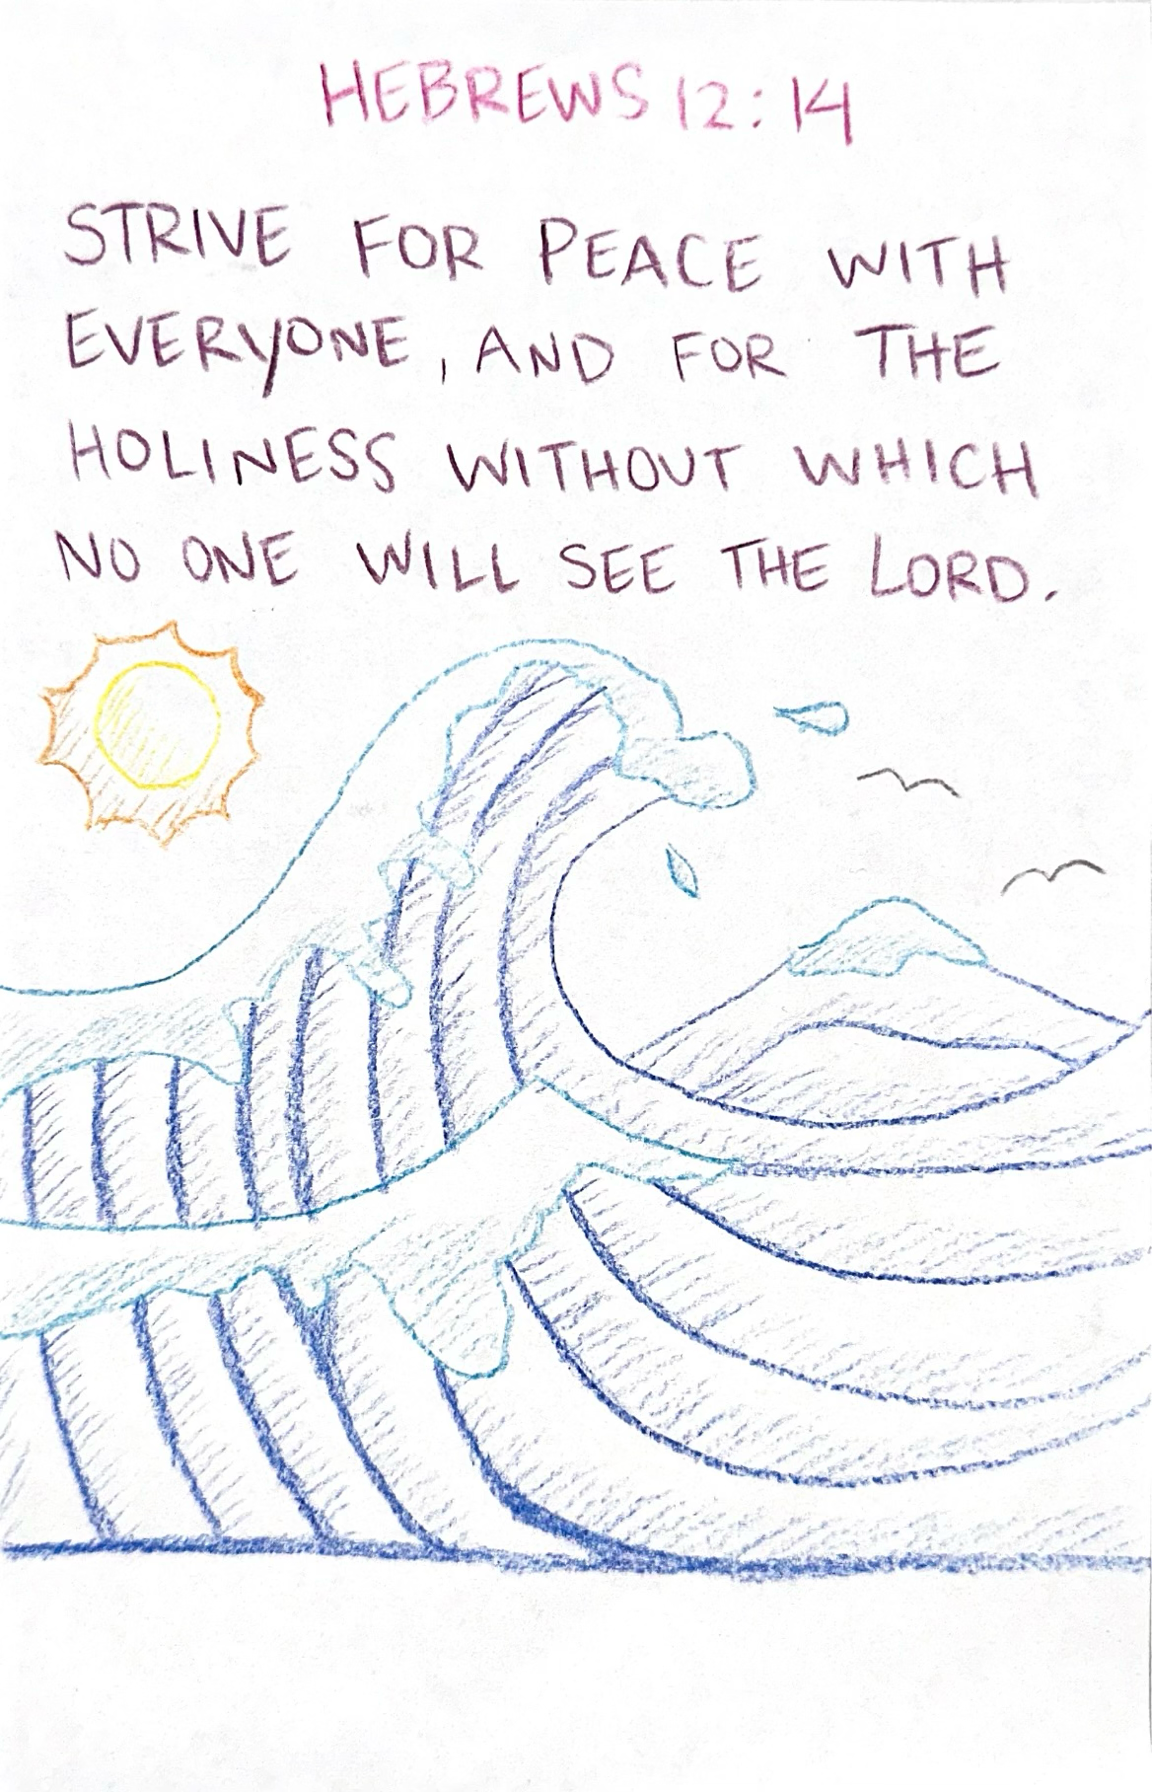 HEBREWS 12:14
STRIVE FOR PEACE WITH
EVERYONE, AND FOR THE
HOLINESS WITHOUT WHICH
NO ONE WILL SEE THE LORD.